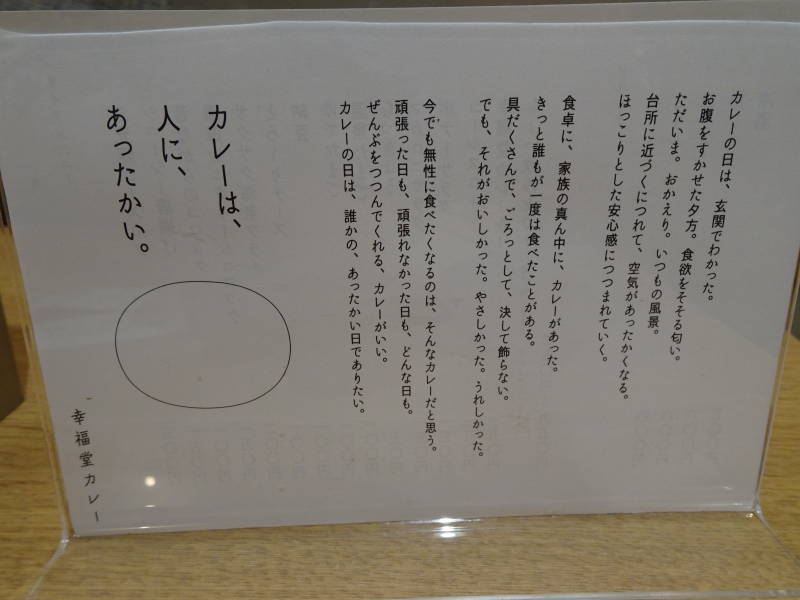 カレーの日は、玄関でわかった。
お腹をすかせた夕方。食欲をそそる匂い。
ただいま。おかえり。いつもの風景。
台所に近づくにつれて、空気があったかくなる。
ほっこりとした安心感につつまれていく。
食卓に、家族の真ん中に、カレーがあった。
きっと誰もが一度は食べたことがある。
具だくさんで、ごろっとして、決して飾らない。
でも、それがおいしかった。やさしかった。うれしかった。
今でも無性に食べたくなるのは、そんなカレーだと思う。
頑張った日も、頑張れなかった日も、どんな日も。
ぜんぶをつつんでくれる、カレーがいい。
カレーの日は、誰かの、あったかい日でありたい。
カレーは、
人に、
あったかい。
幸福堂カレー